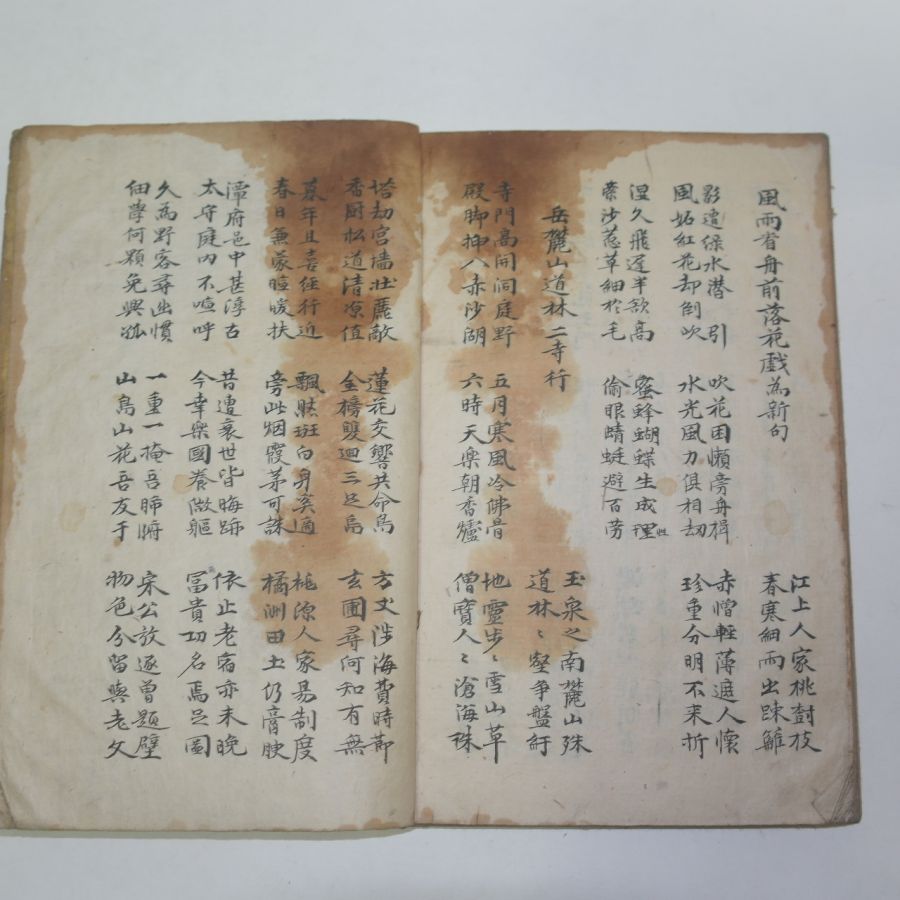 風雨看舟前落花戲為新句
江上人家桃樹枝
春寒細雨出疎籬
影遭綠水潜引
風妬紅花却倒吹
吹花困懶旁舟楫
水光風力俱相劫
赤憎輕薄遮人懷
珍重分明不來折
湿久飛遲半欲高
縈沙惹草細於毛
蜜蜂蝴蝶生成理性
偷眼蜻蜓避百劳
岳麓山道林二寺行
玉泉之南麓山殊
道林〻壑争盤紆
寺門高開洞庭野
殿脚插入赤沙湖
五月寒風冷佛骨
六時天樂朝香爐
地靈步〻雪山草
僧寶人〻滄海珠
塔劫宮墻壮麗敵
香厨松道清凉值
蓮花交響共命鳥
金榜雙迴三足烏
方丈涉海費時節
玄圃尋何知有無
暮年且喜經行近
春日無蒙暄暖扶
飄然斑白身奚適
旁此烟霞茅可誅
桃源人家易制度
橘洲田土仍膏腴
潭府邑中甚淳古
太守庭内不喧呼
昔遭衰世皆晦跡
今幸樂國養微軀
依止老宿亦未晚
冨貴功名焉足圖
久為野客尋幽慣
細學何顆免興孤
一重一掩吾肺腑
山鳥山花吾友于
宋公放逐曾題壁
物色分留與老夫